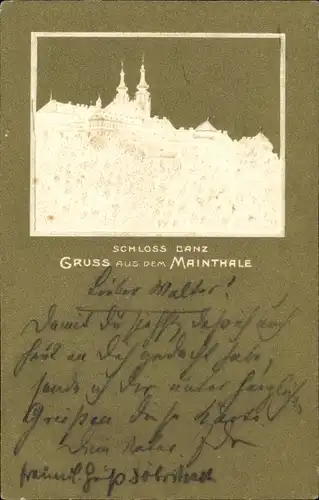 SCHLOSS BANZ
GRUSS AUS DEM MAINTHALE
Lieber Walter!
Damit du siehst, daß ich auch
heut an Dich gedacht habe,
sende ich Dir unter herzlichsten
Grüßen diese Karte
Dein Vater